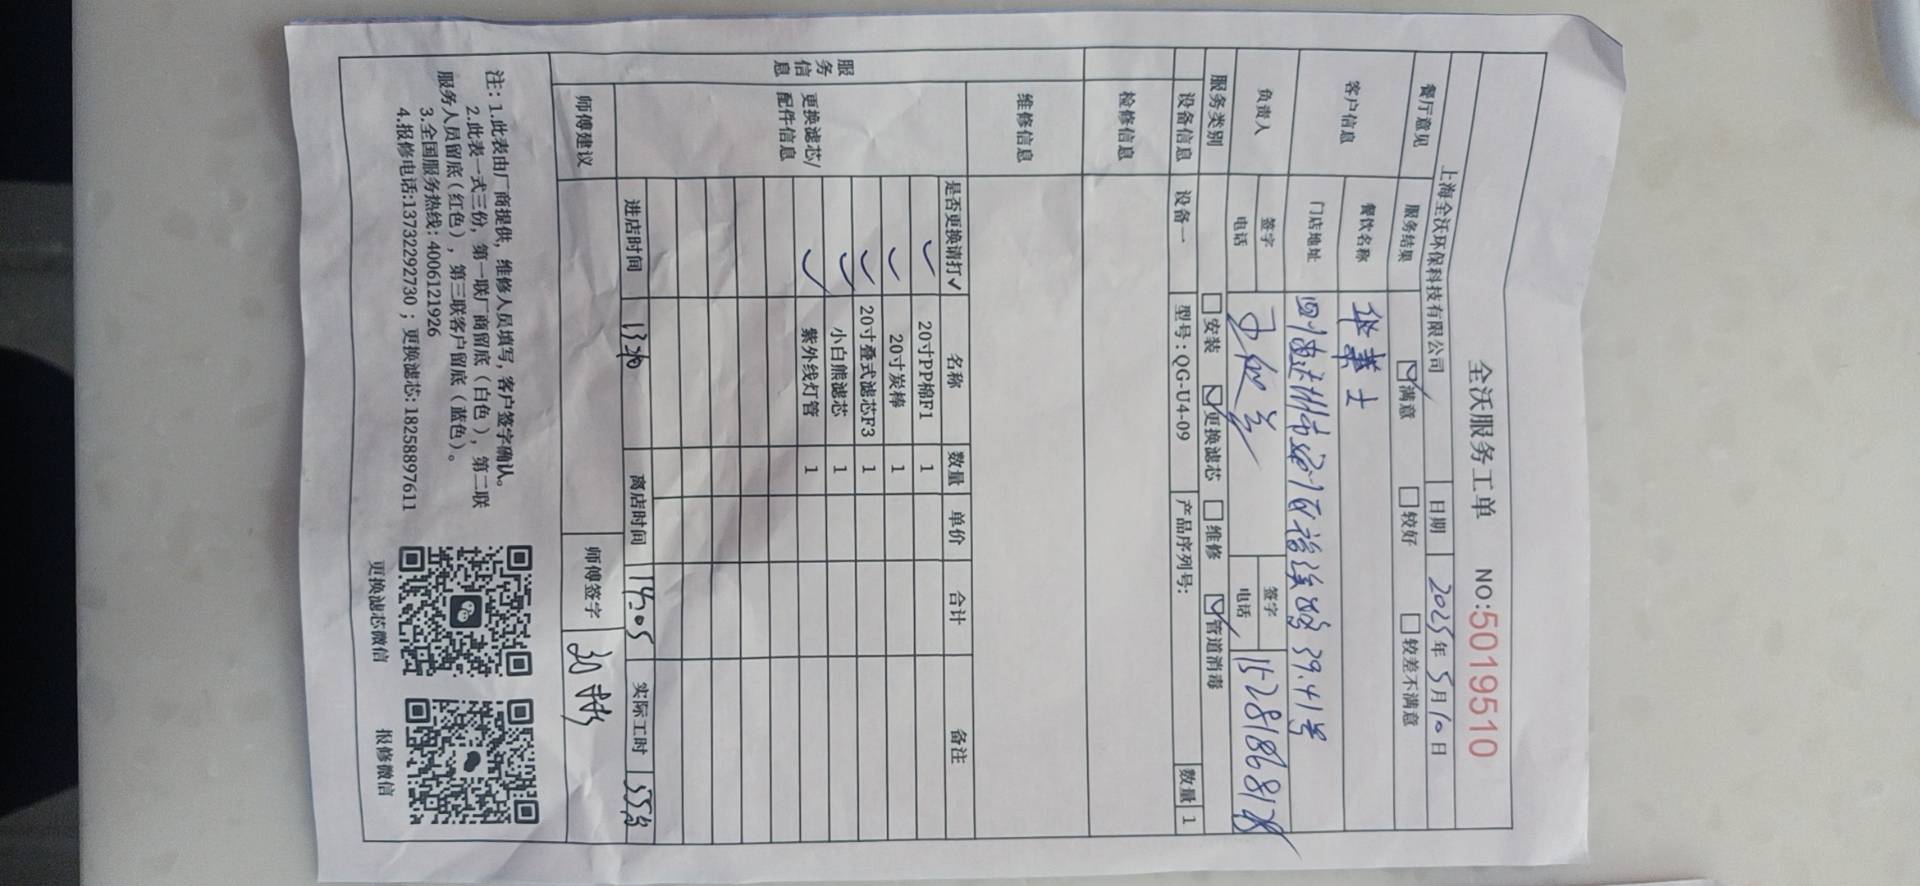 全沃服务工单 NO:5019510
上海全沃环保科技有限公司 日期 2025年5月10日
餐厅意见 服务结果 ☑满意 □较好 □较差不满意
客户信息 餐饮名称 华莱士
门店地址 39.41号
负责人 签字 签字
电话 电话 15281868178
服务类别 □安装 ☑更换滤芯 □维修 ☑管道消毒
设备信息 设备一 型号:QG-U4-09 产品序列号: 数量 1
检修信息
维修信息
服务信息
更换滤芯/配件信息
是否更换请打✓ 名称 数量 单价 合计 备注
✓ 20寸PP棉F1 1
✓ 20寸炭棒 1
✓ 20寸叠式滤芯F3 1
✓ 小白熊滤芯 1
✓ 紫外线灯管 1
进店时间 离店时间 14:05 实际工时 55分
师傅建议 师傅签字
注: 1.此表由厂商提供, 维修人员填写, 客户签字确认。
2.此表一式三份, 第一联厂商留底(白色), 第二联
服务人员留底(红色), 第三联客户留底(蓝色)。
3.全国服务热线: 4006121926
4.报修电话:13732292730; 更换滤芯: 18258897611
更换滤芯微信 报修微信